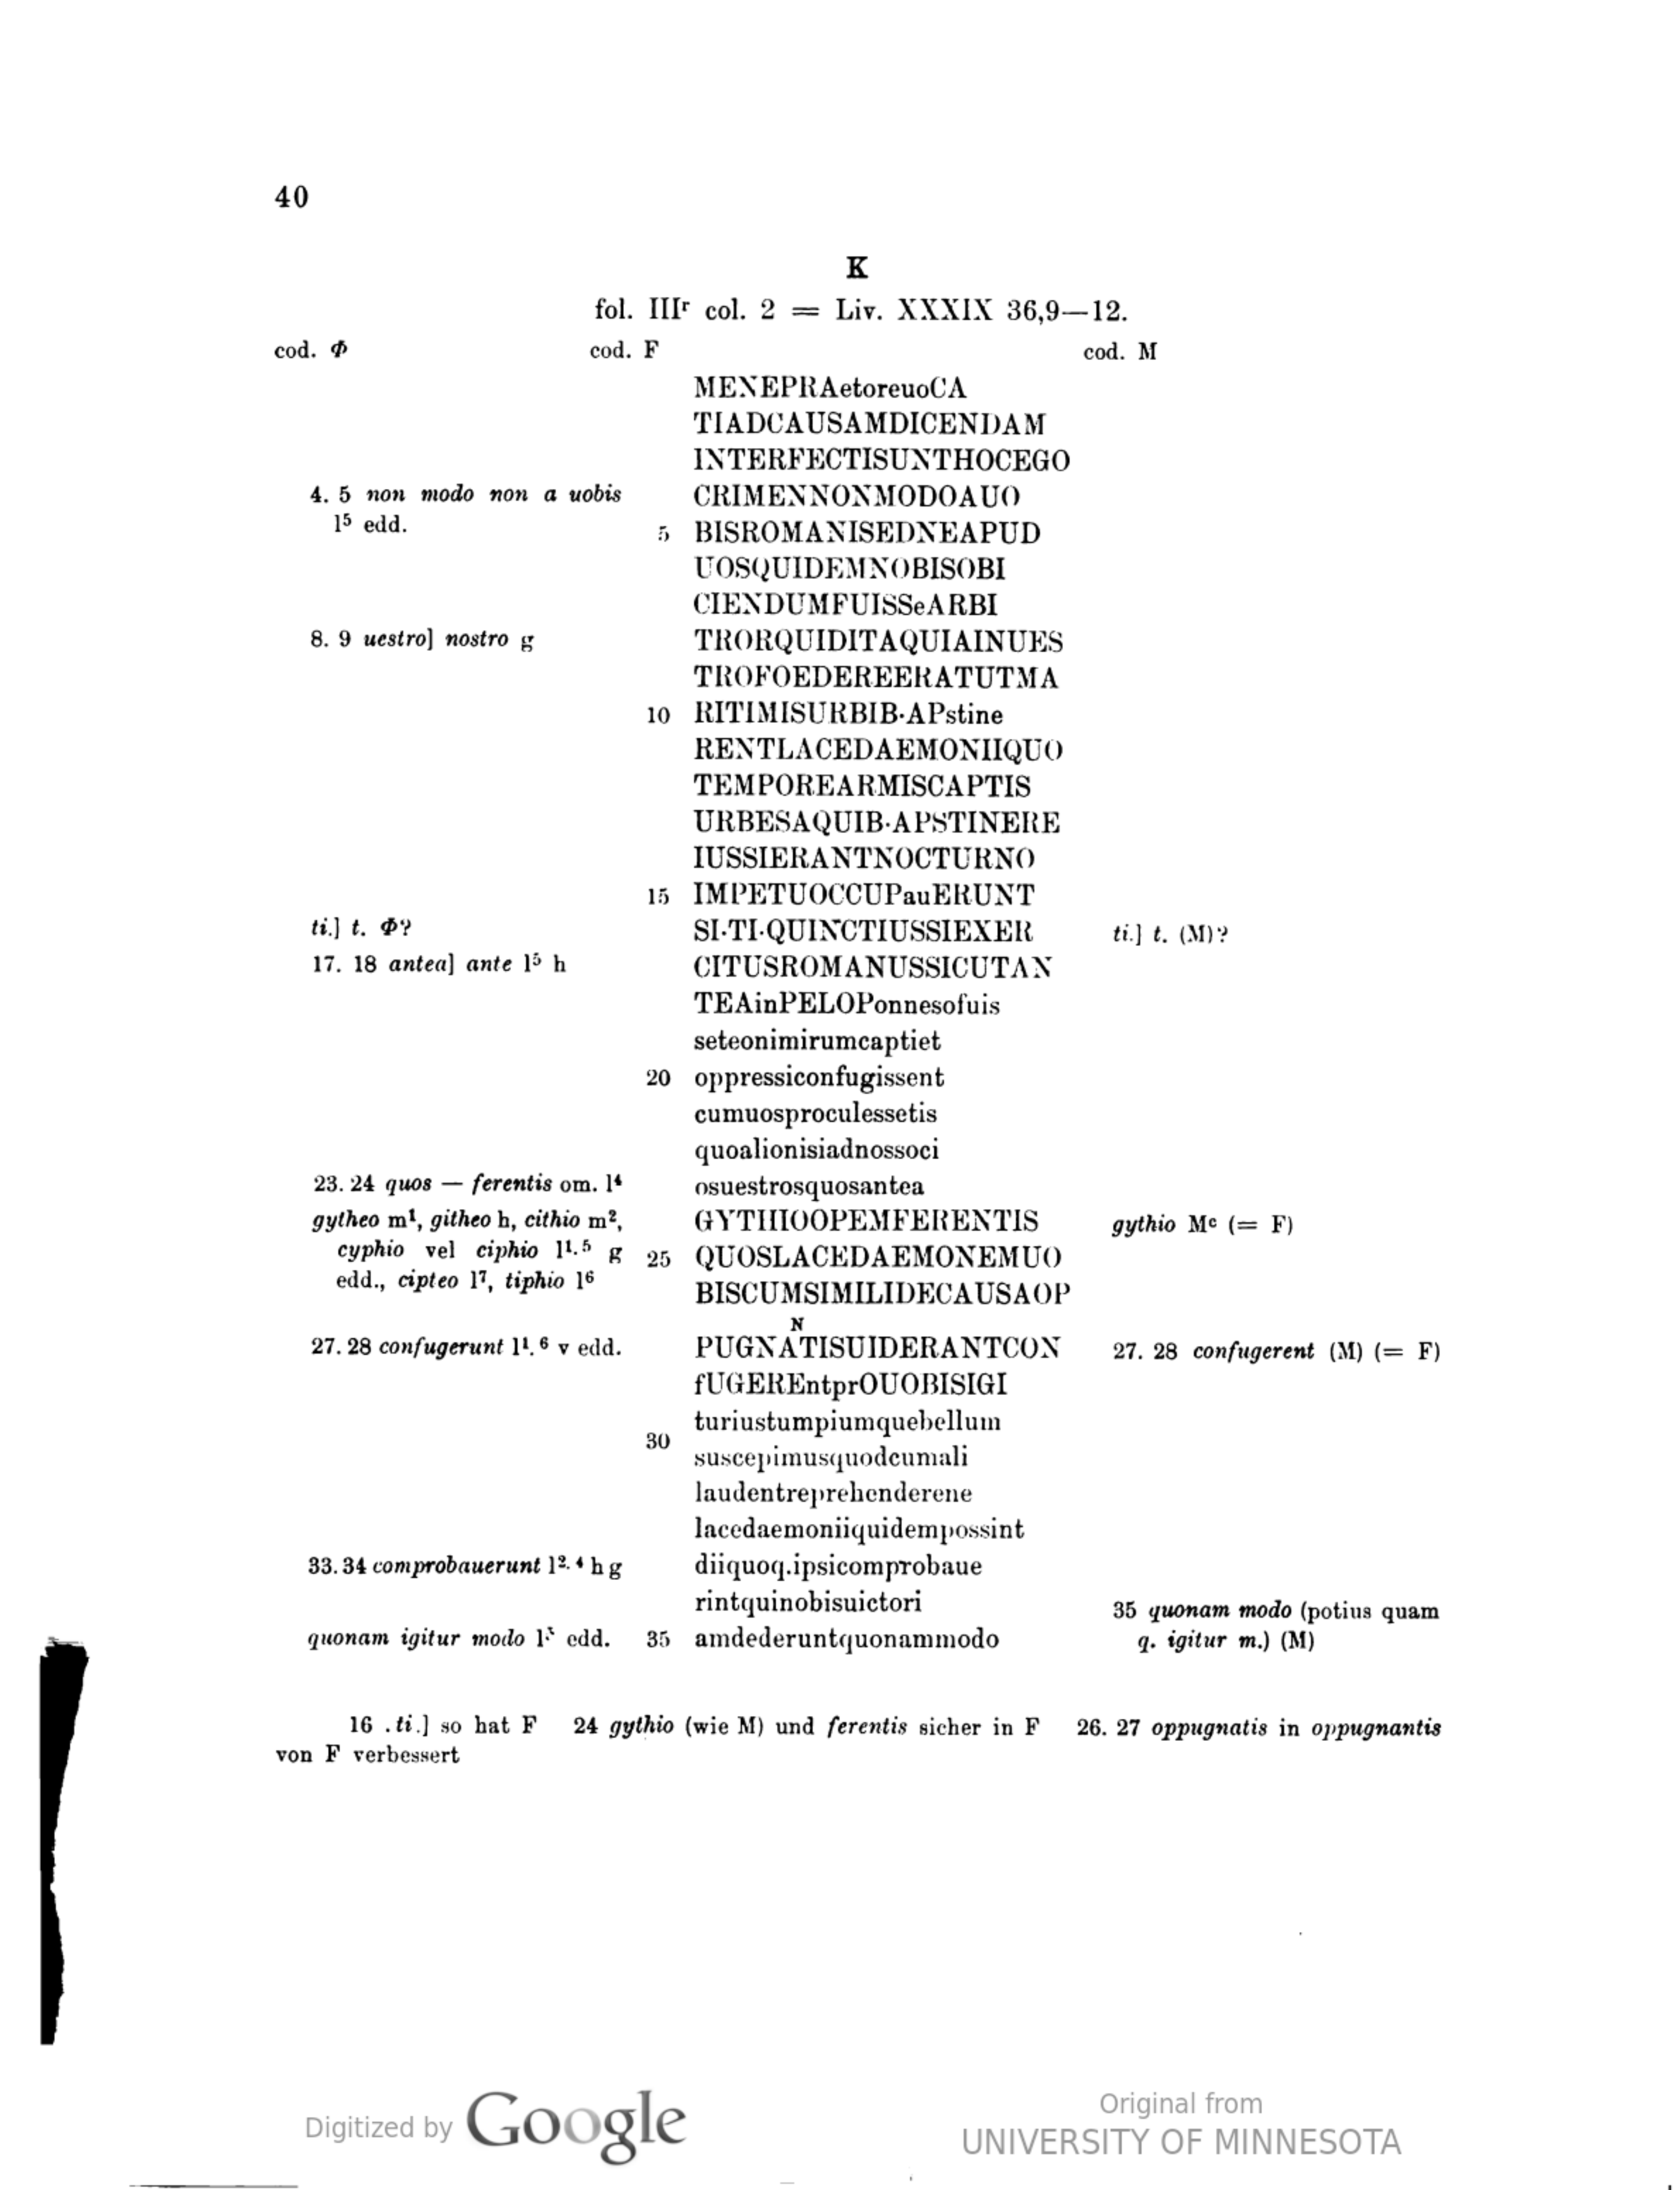 40
K
fol. IIIʳ col. 2 = Liv. XXXIX 36,9—12.
cod. Φ cod. F cod. M
MENEPRAetoreuoCA
TIADCAUSAMDICENDAM
INTERFECTISUNTHOCEGO
4. 5 non modo non a uobis CRIMENNONMODOAUO
l⁵ edd. 5 BISROMANISEDNEAPUD
UOSQUIDEMNOBISOBI
CIENDUMFUISSeARBI
8. 9 uestro] nostro g TRORQUIDITAQUIAINUES
TROFOEDEREERATUTMA
10 RITIMISURBIB·APstine
RENTLACEDAEMONIIQUO
TEMPOREARMISCAPTIS
URBESAQUIB·APSTINERE
IUSSIERANTNOCTURNO
15 IMPETUOCCUPauERUNT
ti.] t. Φ? SI·TI·QUINCTIUSSIEXER ti.] t. (M)?
17. 18 antea] ante l⁵ h CITUSROMANUSSICUTAN
TEAinPELOPonnesofuis
seteonimirumcaptiet
20 oppressiconfugissent
cumuosproculessetis
quoalionisiadnossoci
23. 24 quos — ferentis om. l⁴ osuestrosquosantea
gytheo m¹, githeo h, cithio m², GYTHIOOPEMFERENTIS gythio Mᶜ (= F)
cyphio vel ciphio l¹·⁵ g 25 QUOSLACEDAEMONEMUO
edd., cipteo l⁷, tiphio l⁶ BISCUMSIMILIDECAUSAOP
N
27. 28 confugerunt l¹·⁶ v edd. PUGNATISUIDERANTCON 27. 28 confugerent (M) (= F)
fUGEREntprOUOBISIGI
turiustumpiumquebellum
30 suscepimusquodcumali
laudentreprehenderene
lacedaemoniiquidempossint
33. 34 comprobauerunt l²·⁴ h g diiquoq.ipsicomprobaue
rintquinobisuictori 35 quonam modo (potius quam
quonam igitur modo l⁵ edd. 35 amdederuntquonammodo q. igitur m.) (M)
16 .ti.] so hat F 24 gythio (wie M) und ferentis sicher in F 26. 27 oppugnatis in oppugnantis
von F verbessert
Digitized by Google
Original from
UNIVERSITY OF MINNESOTA